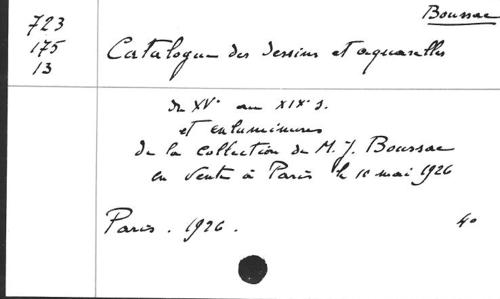 Boussac
723
175
13
Catalogue des dessins et aquarelles
du XVe au XIXe s.
et enluminures
de la collection de M. J. Boussac
en vente à Paris le 10 mai 1926
Paris. 1926.
4o